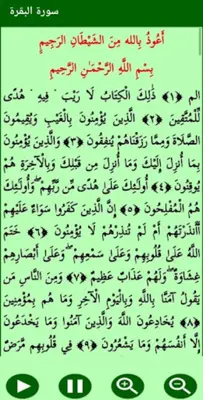 سورة البقرة
أَعُوذُ بِاللهِ مِنَ الشَّيْطَانِ الرَّجِيمِ
بِسْمِ اللَّهِ الرَّحْمَـٰنِ الرَّحِيمِ
الم ﴿١﴾ ذَٰلِكَ الْكِتَابُ لَا رَيْبَ ۛ فِيهِ ۛ هُدًى
لِّلْمُتَّقِينَ ﴿٢﴾ الَّذِينَ يُؤْمِنُونَ بِالْغَيْبِ وَيُقِيمُونَ
الصَّلَاةَ وَمِمَّا رَزَقْنَاهُمْ يُنفِقُونَ ﴿٣﴾ وَالَّذِينَ يُؤْمِنُونَ
بِمَا أُنزِلَ إِلَيْكَ وَمَا أُنزِلَ مِن قَبْلِكَ وَبِالْآخِرَةِ هُمْ
يُوقِنُونَ ﴿٤﴾ أُولَـٰئِكَ عَلَىٰ هُدًى مِّن رَّبِّهِمْ ۖ وَأُولَـٰئِكَ
هُمُ الْمُفْلِحُونَ ﴿٥﴾ إِنَّ الَّذِينَ كَفَرُوا سَوَاءٌ عَلَيْهِمْ
أَأَنذَرْتَهُمْ أَمْ لَمْ تُنذِرْهُمْ لَا يُؤْمِنُونَ ﴿٦﴾ خَتَمَ
اللَّهُ عَلَىٰ قُلُوبِهِمْ وَعَلَىٰ سَمْعِهِمْ ۖ وَعَلَىٰ أَبْصَارِهِمْ
غِشَاوَةٌ ۖ وَلَهُمْ عَذَابٌ عَظِيمٌ ﴿٧﴾ وَمِنَ النَّاسِ مَن
يَقُولُ آمَنَّا بِاللَّهِ وَبِالْيَوْمِ الْآخِرِ وَمَا هُم بِمُؤْمِنِينَ
﴿٨﴾ يُخَادِعُونَ اللَّهَ وَالَّذِينَ آمَنُوا وَمَا يَخْدَعُونَ
إِلَّا أَنفُسَهُمْ وَمَا يَشْعُرُونَ ﴿٩﴾ فِي قُلُوبِهِم مَّرَضٌ